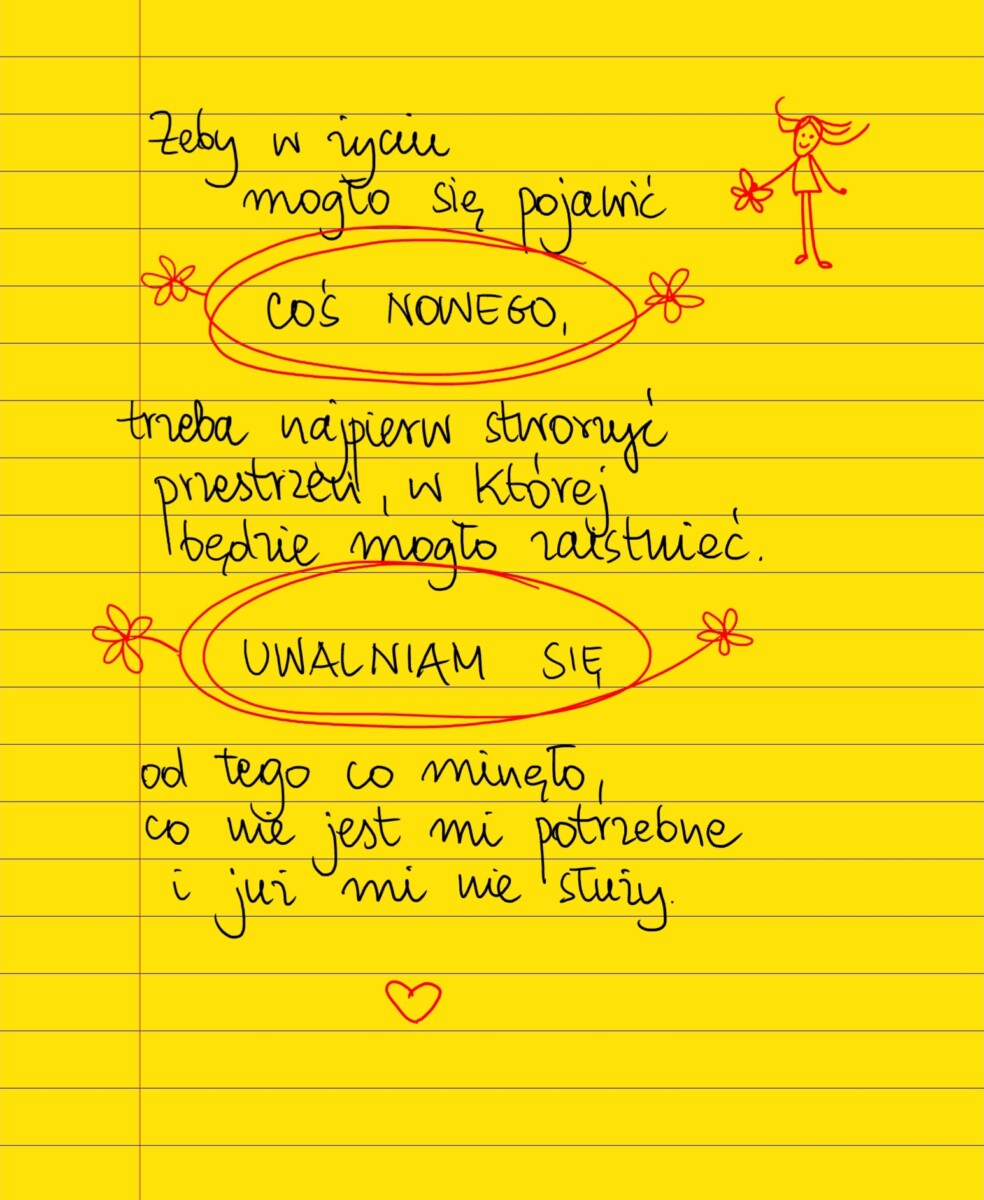 Żeby w życiu
mogło się pojawić
COŚ NOWEGO,
trzeba najpierw stworzyć
przestrzeń, w której
będzie mogło zaistnieć.
UWALNIAM SIĘ
od tego co minęło,
co nie jest mi potrzebne
i już mi nie służy.